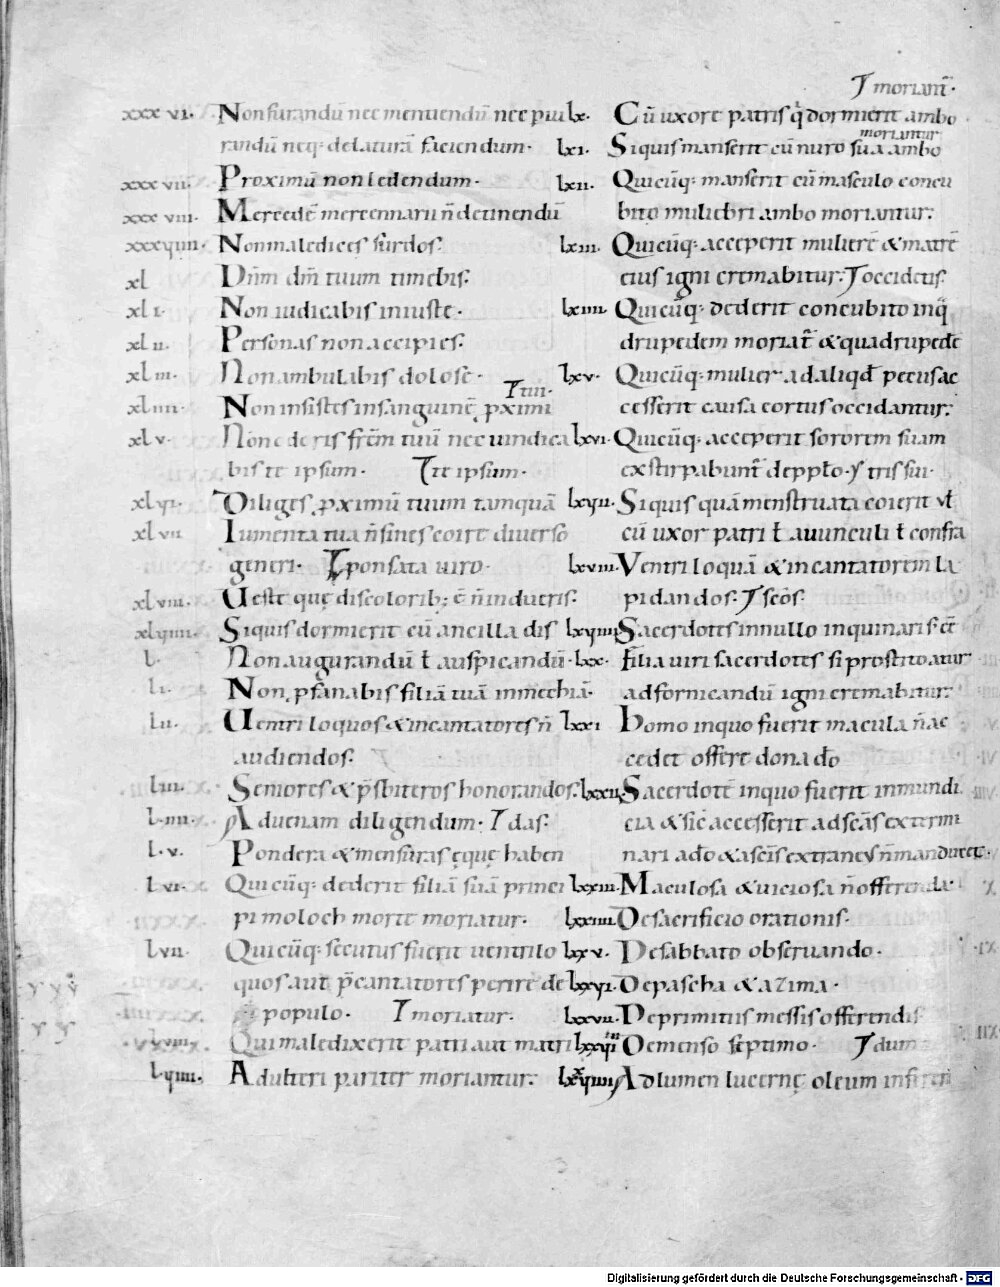 xxxvi. Non furandū nec mentiendū nec peiu
randū neq; delaturā faciendum·
xxxvii. Proximū non ledendum·
xxxviii. Mercedē mercennarii ñ detinendū
xxxviiii. Non maledices surdos.
xl Dñm dm̄ tuum timebis.
xli. Non iudicabis iniuste·
xlii. Personas non accipies.
xliii. Non ambulabis dolose·
tui·
xliiii. Non insistes in sanguinę pximi
xlv. Non oderis frēm tuū nec uindica
bis te ipsum· te ipsum·
xlvi. Diliges pximū tuum tamquā
xlvii Iumenta tua ñ sines coire diuerso
generi· sponsata uiro·
xlviii. Ueste quę discolorib; ē ñ indueris.
xlviiii. Siquis dormierit cū ancilla dis
l. Non augurandū ł auspicandū·
li. Non pfanabis filiā tuā in mechiā·
lii. Uentriloquos & incantatores ñ
audiendos.
liii. Seniores & p̄sbiteros honorandos.
liiii. Aduenam diligendum· das.
lv. Pondera & mensuras ęque haben
lvi. Quicūq; dederit filiā suā princi
pi moloch morte moriatur.
lvii. Quicūq; secutus fuerit uentrilo
quos aut p̄cantatores perire de
populo· moriatur·
lviii. Qui maledixerit patri aut matri
lviiii. Adulteri pariter moriantur.
moriant̄·
lx. Cū uxore patris q dormierit ambo
moriantur
lxi. Siquis manserit cū nuro sua ambo
lxii. Quicūq; manserit cū masculo concu
bito muliebri ambo moriantur.
lxiii. Quicūq; acceperit mulierē & matrē
eius igni cremabitur. occidetis.
lxiiii. Quicūq; dederit concubito inq
drupedem moriat̄ & quadrupedē
lxv. Quicūq; mulier ad aliqd pecus ac
cesserit causa coitus occidantur.
lxvi. Quicūq; acceperit sororem suam
exstirpabunt̄ de pplo· tris sui·
lxvii. Siquis quā menstruata coierit vł
cū uxor patri ł auunculi ł confra
lxviii. Ventriloquā & incantatorem la
pidandos. scōs.
lxviiii Sacerdotes in nullo inquinari· eē
lxx· filia uiri sacerdotes si prostituatur
ad fornicandū igni cremabitur.
lxxi homo in quo fuerit macula ñ ac
cedet offerre dona do
lxxii. Sacerdotē in quo fuerit inmundi
cia & sic accesserit ad scās extermi
nari a do & a scīs extraneus ñ manducet·
lxxiii. Maculosa & uiciosa ñ offerenda·
lxxiiii. De sacrificio orationis.
lxxv. De sabbato obseruando·
lxxvi. De pascha & azima·
lxxvii. De primitiis messis offerendis
lxxviii De menso septimo· dum
lxxviiii Ad lumen lucernę oleum
Digitalisierung gefördert durch die Deutsche Forschungsgemeinschaft - DFG